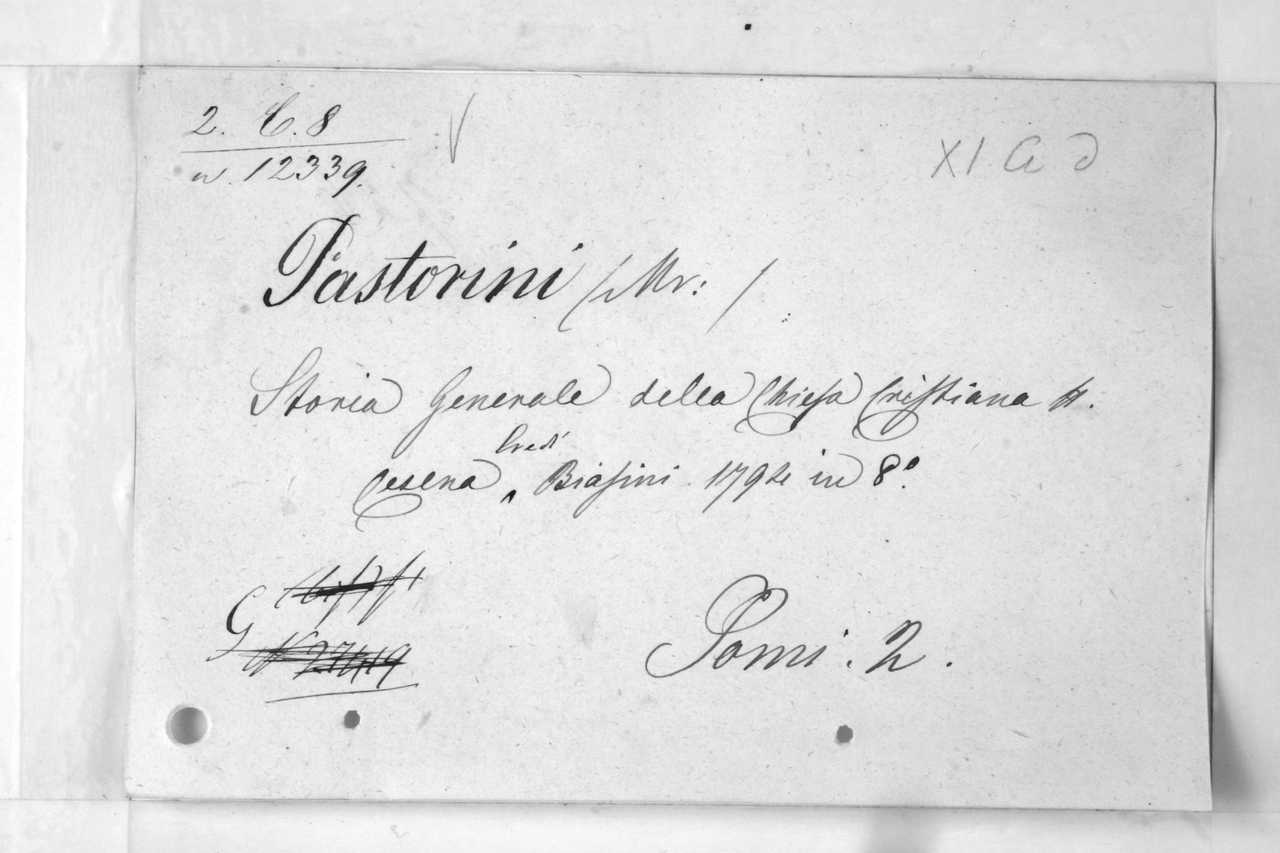 2. C. 8
n. 12339.
XI C d
Pastorini (Mr:)
Storia Generale della Chiesa Cristiana
Cesena Eredi Biasini 1794 in 8.º
G
Tomi. 2.